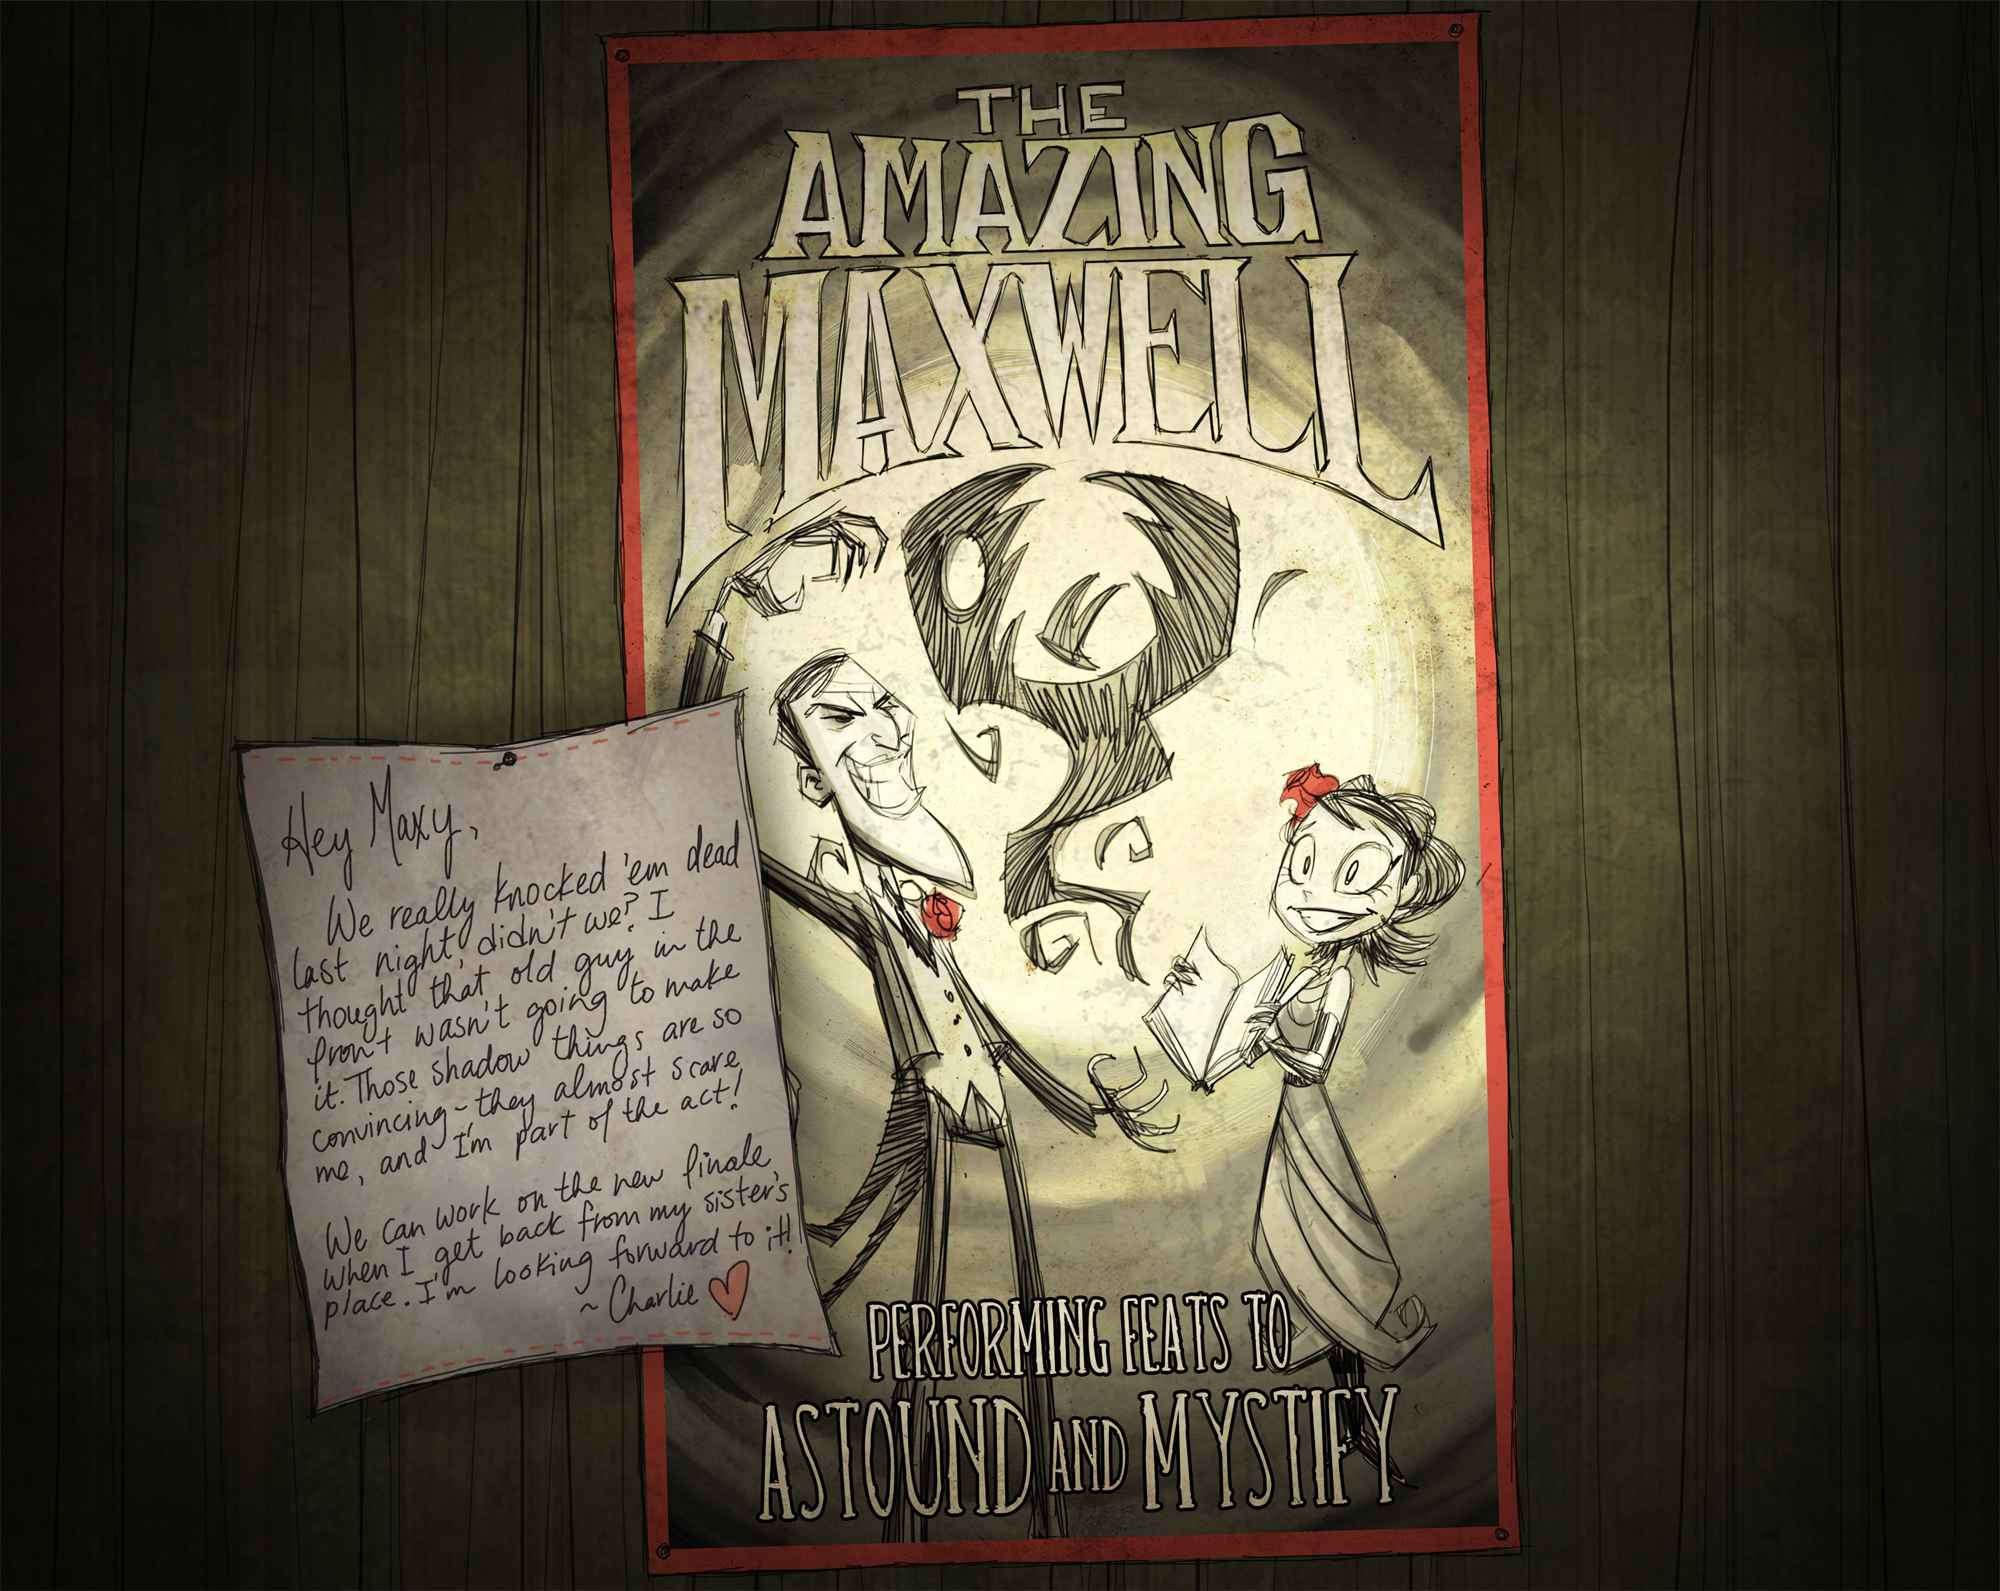 THE
AMAZING
MAXWELL
Hey Maxy,
We really knocked 'em dead
last night, didn't we? I
thought that old guy in the
front wasn't going to make
it. Those shadow things are so
convincing - they almost scare
me, and I'm part of the act!
We can work on the new finale,
when I get back from my sister's
place. I'm looking forward to it!
~ Charlie ♥
PERFORMING FEATS TO
ASTOUND AND MYSTIFY